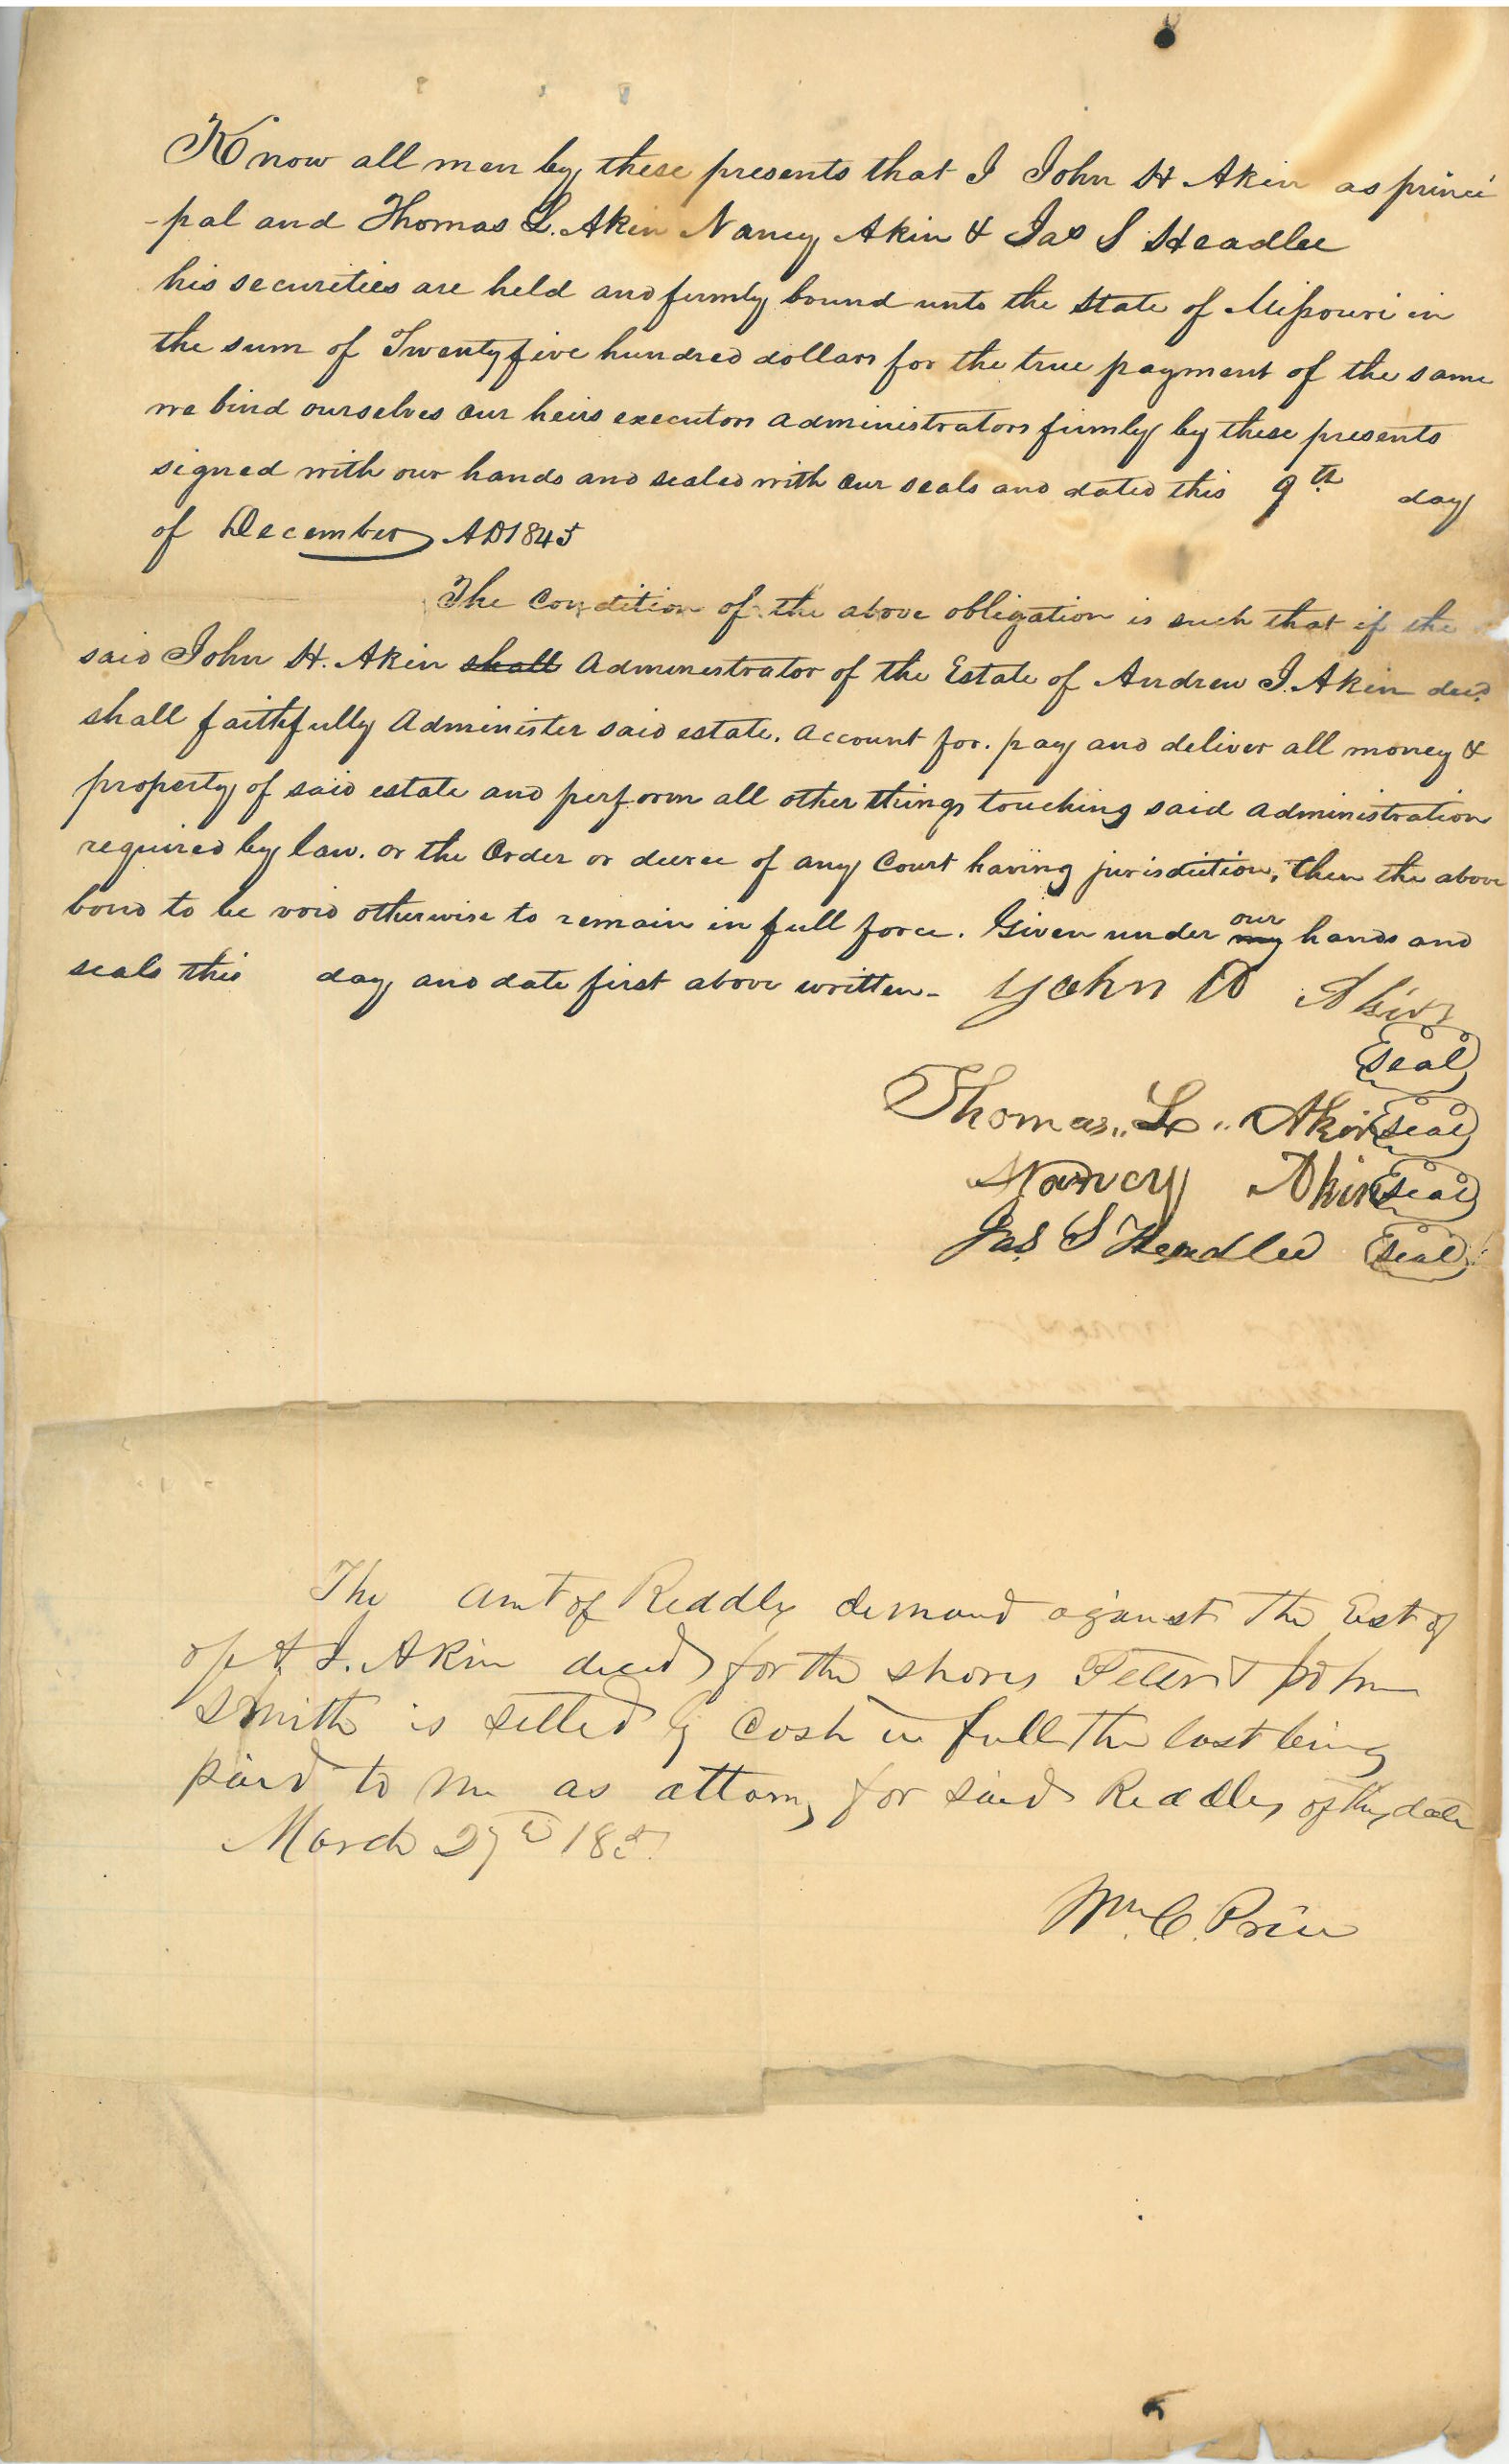 Know all men by these presents that I John H Akin as princi
-pal and Thomas L. Akin Nancy Akin & Jas S Headlee
his securities are held and firmly bound unto the State of Missouri in
the sum of Twentyfive hundred dollars for the true payment of the same
we bind ourselves our heirs executors administrators firmly by these presents
signed with our hands and sealed with our seals and dated this 9th day
of December AD 1845
The Condition of the above obligation is such that if the
said John H. Akin shall Administrator of the Estate of Andrew J. Akin decd
shall faithfully Administer said estate. Account for. pay and deliver all money &
property of said estate and perform all other things touching said administration
required by law. or the Order or decree of any Court having jurisdiction, then the above
bond to be void otherwise to remain in full force. Given under my our hands and
seals this day and date first above written-
John H Akin
seal
Thomas,, L,, Akin seal
Nancy Akin seal
Jas S Headlee seal
The amt of Reddly demand against the Est of
of A J. Akin decd for the shores Peter & John
Smith is setled by Cash in full the last being
paid to me as attorny for said Reddly of this date
March 27th 185
Wm. C. Price